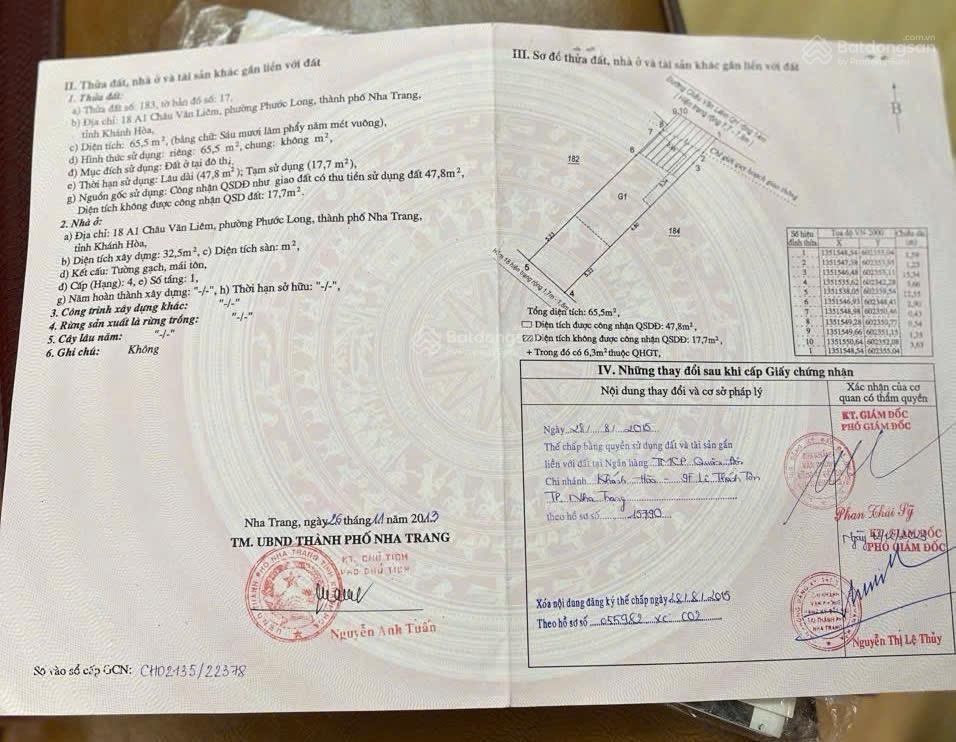 II. Thửa đất, nhà ở và tài sản khác gắn liền với đất
1. Thửa đất:
a) Thửa đất số: 183, tờ bản đồ số: 17,
b) Địa chỉ: 18 A1 Châu Văn Liêm, phường Phước Long, thành phố Nha Trang,
tỉnh Khánh Hòa,
c) Diện tích: 65,5 m², (bằng chữ: Sáu mươi lăm phẩy năm mét vuông),
d) Hình thức sử dụng: riêng: 65,5 m², chung: không m²,
đ) Mục đích sử dụng: Đất ở tại đô thị,
e) Thời hạn sử dụng: Lâu dài (47,8 m²); Tạm sử dụng (17,7 m²),
g) Nguồn gốc sử dụng: Công nhận QSDĐ như giao đất có thu tiền sử dụng đất 47,8m²,
Diện tích không được công nhận QSD đất: 17,7m².
2. Nhà ở:
a) Địa chỉ: 18 A1 Châu Văn Liêm, phường Phước Long, thành phố Nha Trang,
tỉnh Khánh Hòa,
b) Diện tích xây dựng: 32,5m², c) Diện tích sàn: m²,
d) Kết cấu: Tường gạch, mái tôn,
đ) Cấp (Hạng): 4, e) Số tầng: 1,
g) Năm hoàn thành xây dựng: "-/-", h) Thời hạn sở hữu: "-/-",
3. Công trình xây dựng khác: "-/-"
4. Rừng sản xuất là rừng trồng: "-/-"
5. Cây lâu năm: "-/-"
6. Ghi chú: Không
Nha Trang, ngày 26 tháng 11 năm 2013
TM. UBND THÀNH PHỐ NHA TRANG
KT. CHỦ TỊCH
PHÓ CHỦ TỊCH
Nguyễn Anh Tuấn
Số vào sổ cấp GCN: CH02135/22378
III. Sơ đồ thửa đất, nhà ở và tài sản khác gắn liền với đất
Batdongsan
.com.vn
by PropertyGuru
B
Chỉ giới quy hoạch giao thông
9,10
8
7
6
2
3
182
G1
184
5
4
Tổng diện tích: 65,5m²,
Diện tích được công nhận QSDĐ: 47,8m²,
Diện tích không được công nhận QSDĐ: 17,7m²,
+ Trong đó có 6,3m² thuộc QHGT,
Số hiệu đỉnh thửa Tọa độ VN 2000 Chiều dài
X Y (m)
1 1351548,54 602355,04
1,59
2 1351547,38 602353,95
1,23
3 1351546,48 602353,11
15,34
4 1351535,62 602342,28
3,66
5 1351538,05 602339,54
12,55
6 1351546,93 602348,41
2,90
7 1351548,98 602350,46
0,43
8 1351549,28 602350,77
0,54
9 1351549,66 602351,15
1,35
10 1351550,64 602352,08
3,63
1 1351548,54 602355,04
IV. Những thay đổi sau khi cấp Giấy chứng nhận
Nội dung thay đổi và cơ sở pháp lý
Xác nhận của cơ
quan có thẩm quyền
Ngày 28/8/2015
Thế chấp bằng quyền sử dụng đất và tài sản gắn
liền với đất tại Ngân hàng TMCP Quân Đội
Chi nhánh Khánh Hòa - 9F Lê Thánh Tôn
TP. Nha Trang
theo hồ sơ số 15790
KT. GIÁM ĐỐC
PHÓ GIÁM ĐỐC
Phan Thái Sỹ
Xóa nội dung đăng ký thế chấp ngày 28/8/2015
Theo hồ sơ số 055982 XC 002
KT. GIÁM ĐỐC
PHÓ GIÁM ĐỐC
Nguyễn Thị Lệ Thủy